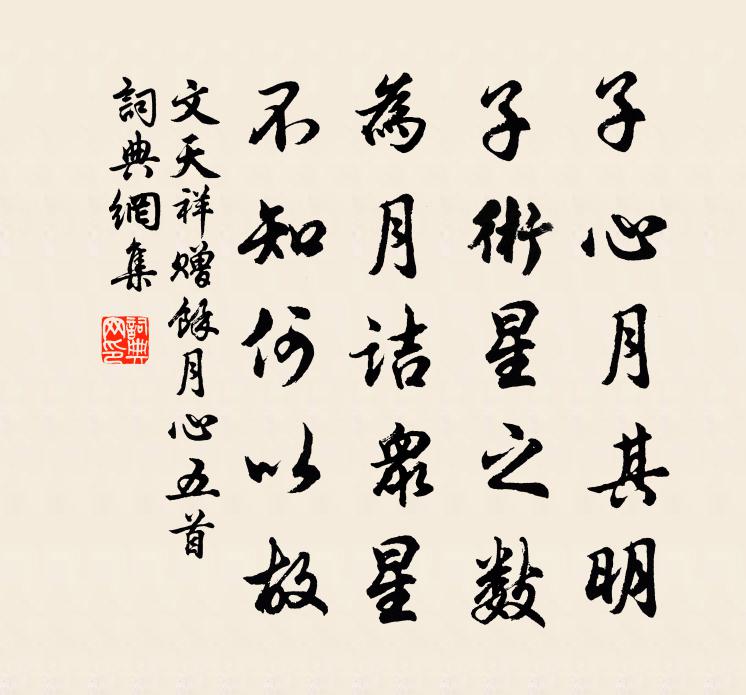 子心月其明
子術星之数
為月詰眾星
不知何以故
文天祥赠馀月心五首
詞典網集
詞典网印